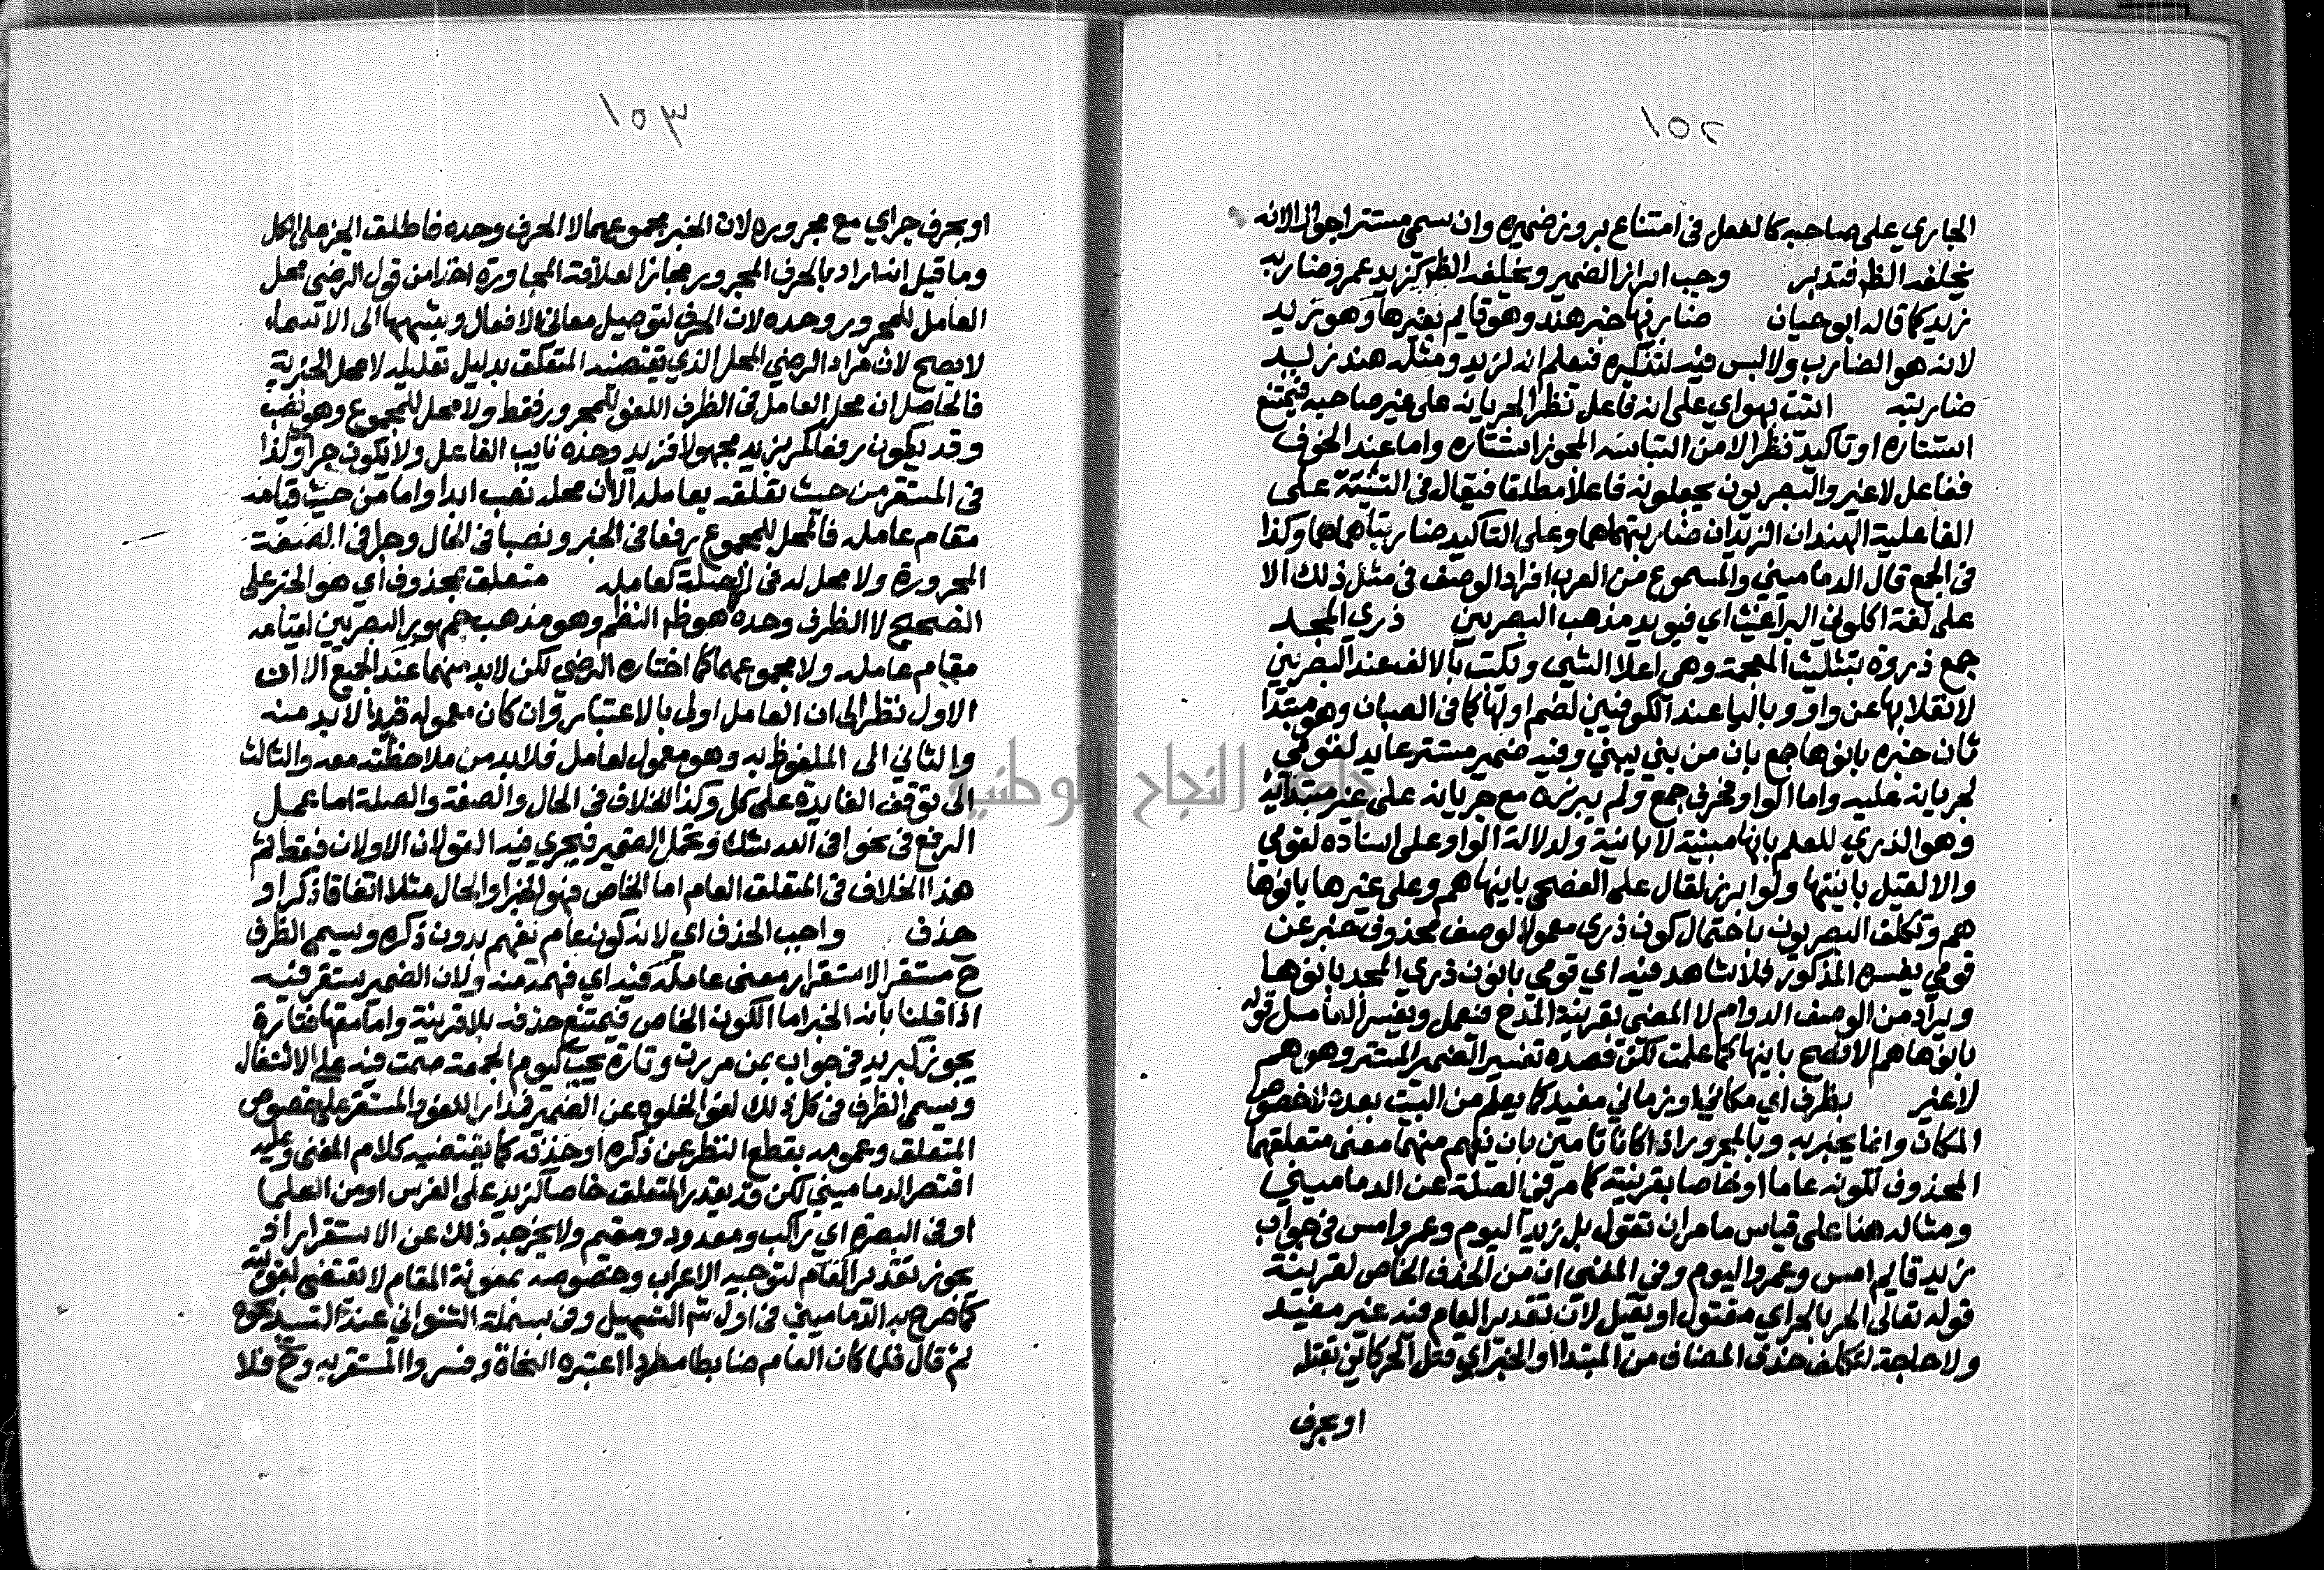 ١٥٢
الجاري على صاحبه كالفعل في امتناع بروز ضميره وان سمى مستترا جوازا لانه
يخلفه الظ فتدبر وجب ابراز الضمير ويخلفه الظ كزيد عمرو ضاربه
زيد كما قاله ابو حيان ضاربها خبر هند وهو قايم بغيرها وهو زيد
لانه هو الضارب ولا لبس فيه لتذكيره فنعلم انه لزيد ومثله هند زيد
ضاربته اتيت بهو اي على انه فاعل نظرا لجريانه على غير صاحبه فيمتنع
استتاره او تاكيد نظرا لامن التباسه المجوز استتاره واما عند الخوف
ففاعل لا غير والبصريون يجعلونه فاعلا مطلقا فيقال في التثنية على
الفاعلية الهندان الزيدان ضاربتهما هما وعلى التاكيد ضاربتاهما هما وكذا
في الجمع قال الدماميني والمسموع من العرب افراد الوصف في مثل ذلك الا
على لغة اكلوني البراغيث اي فيويد مذهب البصريين ذرى المجد
جمع ذروة بتثليث المعجمة وهي اعلا الشي ويكتب بالالف عند البصريين
لانقلابها عن واو وبالياء عند الكوفيين لضم اولها كما في الصبان وهو مبتدا
ثان خبره بانوها جمع بان من بنى يبني وفيه ضمير مستتر عايد لقومي
لجريانه عليه واما الواو فحرف جمع ولم يبرزه مع جريانه على غير مبتدائه
وهو الذرى للعلم بانها مبنية لا بانية ولدلالة الواو على اسناده لقومي
والا لقيل بانيتها ولو ابرز لقال على الفصحى بانيها هم وعلى غيرها بانوها
هم وتكلف البصريون باحتمال كون ذرى معمولا لوصف محذوف خبر عن
قومي يفسره المذكور فلا شاهد فيه اي قومي بانون ذرى المجد بانوها
ويراد من الوصف الدوام لا المضى بقرينة المدح فيعمل ويفسر العامل قوله
بانوها هم الافصح بانيها كما علمت لكن قصده تفسير الضمير المستتر وهو هم
لا غير بظرف اي مكاني او زماني مفيد كما يعلم من البيت بعده لا خصوص
المكان وانما يخبر به وبالمجرور اذا كانا تامين بان يفهم منهما معنى متعلقهما
المحذوف لكونه عاما او خاصا بقرينة كما مر في الصلة عن الدماميني
ومثاله هنا على قياس ما مر ان تقول بل زيد اليوم وعمرو امس في جواب
زيد قايم امس وعمرو اليوم وفي المغني ان من الحذف الخاص لقرينة
قوله تعالى الحر بالحر اي مقتول او يقتل لان تقدير العام فيه غير مفيد
ولا حاجة لتكلف حذف المضاف من المبتدا او الخبر اي قتل الحر كاين بقتله
او بحرف
١٥٣
او بحرف جر اي مع مجروره لان الخبر مجموعهما لا الحرف وحده فاطلق الجزء على الكل
وما قيل انه اراد بالحرف المجرور مجازا لعلاقة المجاورة اخذا من قول الرضى محل
العامل للمجرور وحده لان الحرف لتوصيل معاني الافعال ويشبهها الى الاسماء
لا يصح لان مراد الرضي المحل الذي يقتضيه المتعلق بدليل تعليله لا محل الخبرية
فالحاصل ان محل العامل في الظرف اللغو للمجرور فقط ولا محل للمجموع وهو نصب
وقد يكون رفعا كمر بزيد مجهولا فزيد وحده نايب الفاعل ولا يكون جرا وكذا
في المستقر من حيث تعلقه بعامله الا ان محله نصب ابدا واما من حيث قيامه
مقام عامله فالمحل للمجموع رفعا في الخبر ونصبا في الحال وجرا في الصفة
المجرورة ولا محل له في الصلة كعامله متعلق بمحذوف اي هو الخبر على
الصحيح لا الظرف وحده هو ظ النظم وهو مذهب جمهور البصريين لقيامه
مقام عامله ولا مجموعهما كما اختاره الرضى لكن لا بد منهما عند الجميع الا ان
الاول نظر الى ان العامل اولى بالاعتبار وان كان معموله قيدا لا بد منه
والثاني الى الملفوظ به وهو معمول لعامل فلا بد من ملاحظته معه والثالث
الى توقف الفايدة على كل وكذا الخلاف في الحال والصفة والصلة اما عمل
الرفع في نحو افي الله شك وتحمل الضمير فيجري فيه القولان الاولان فقط ثم
هذا الخلاف في المتعلق العام اما الخاص فهو الخبر او الحال مثلا اتفاقا ذكر او
حذف واجب الحذف اي لانه كون عام يفهم بدون ذكره ويسمى الظرف
ح مستقر الاستقرار معنى عامله فيه اي فهمه منه ولان الضمير يستقر فيه
اذا قلنا بانه الخبر اما الكون الخاص فيمتنع حذفه بلا قرينة واما معها فتارة
يجوز كبزيد في جواب بمن مررت وتارة يجب كيوم الجمعة صمت فيه على الاشتغال
ويسمى الظرف في كل ذلك لغوا لخلوه عن الضمير فمدار اللغو والمستقر على خصوص
المتعلق وعمومه بقطع النظر عن ذكره او حذفه كما يقتضيه كلام المغني وعليه
اقتصر الدماميني لكن قد يقدر المتعلق خاصا كزيد على الفرس او من العلما
او في البصرة اي راكب ومعدود ومقيم ولا يخرجه ذلك عن الاستقرار اذ
يجوز تقدير العام لتوجيه الاعراب وخصوصه بمعونة المقام لا تقتضي لغويته
كما صرح به الدماميني في اول شر التسهيل وفي بسملة الشنواني عن السيد نحوه
ثم قال فلما كان العام ضابطا مطردا اعتبره النحاة وفسروا المستقر به وح فلا
جامعة النجاح الوطنية